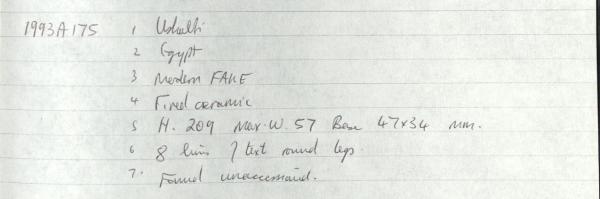 1993A175 1 Ushabti
2 Egypt
3 Modern FAKE
4 Fired ceramic
5 H. 209 Max. W. 57 Base 47x34 mm.
6 8 lines of text round legs.
7. Found unaccessioned.